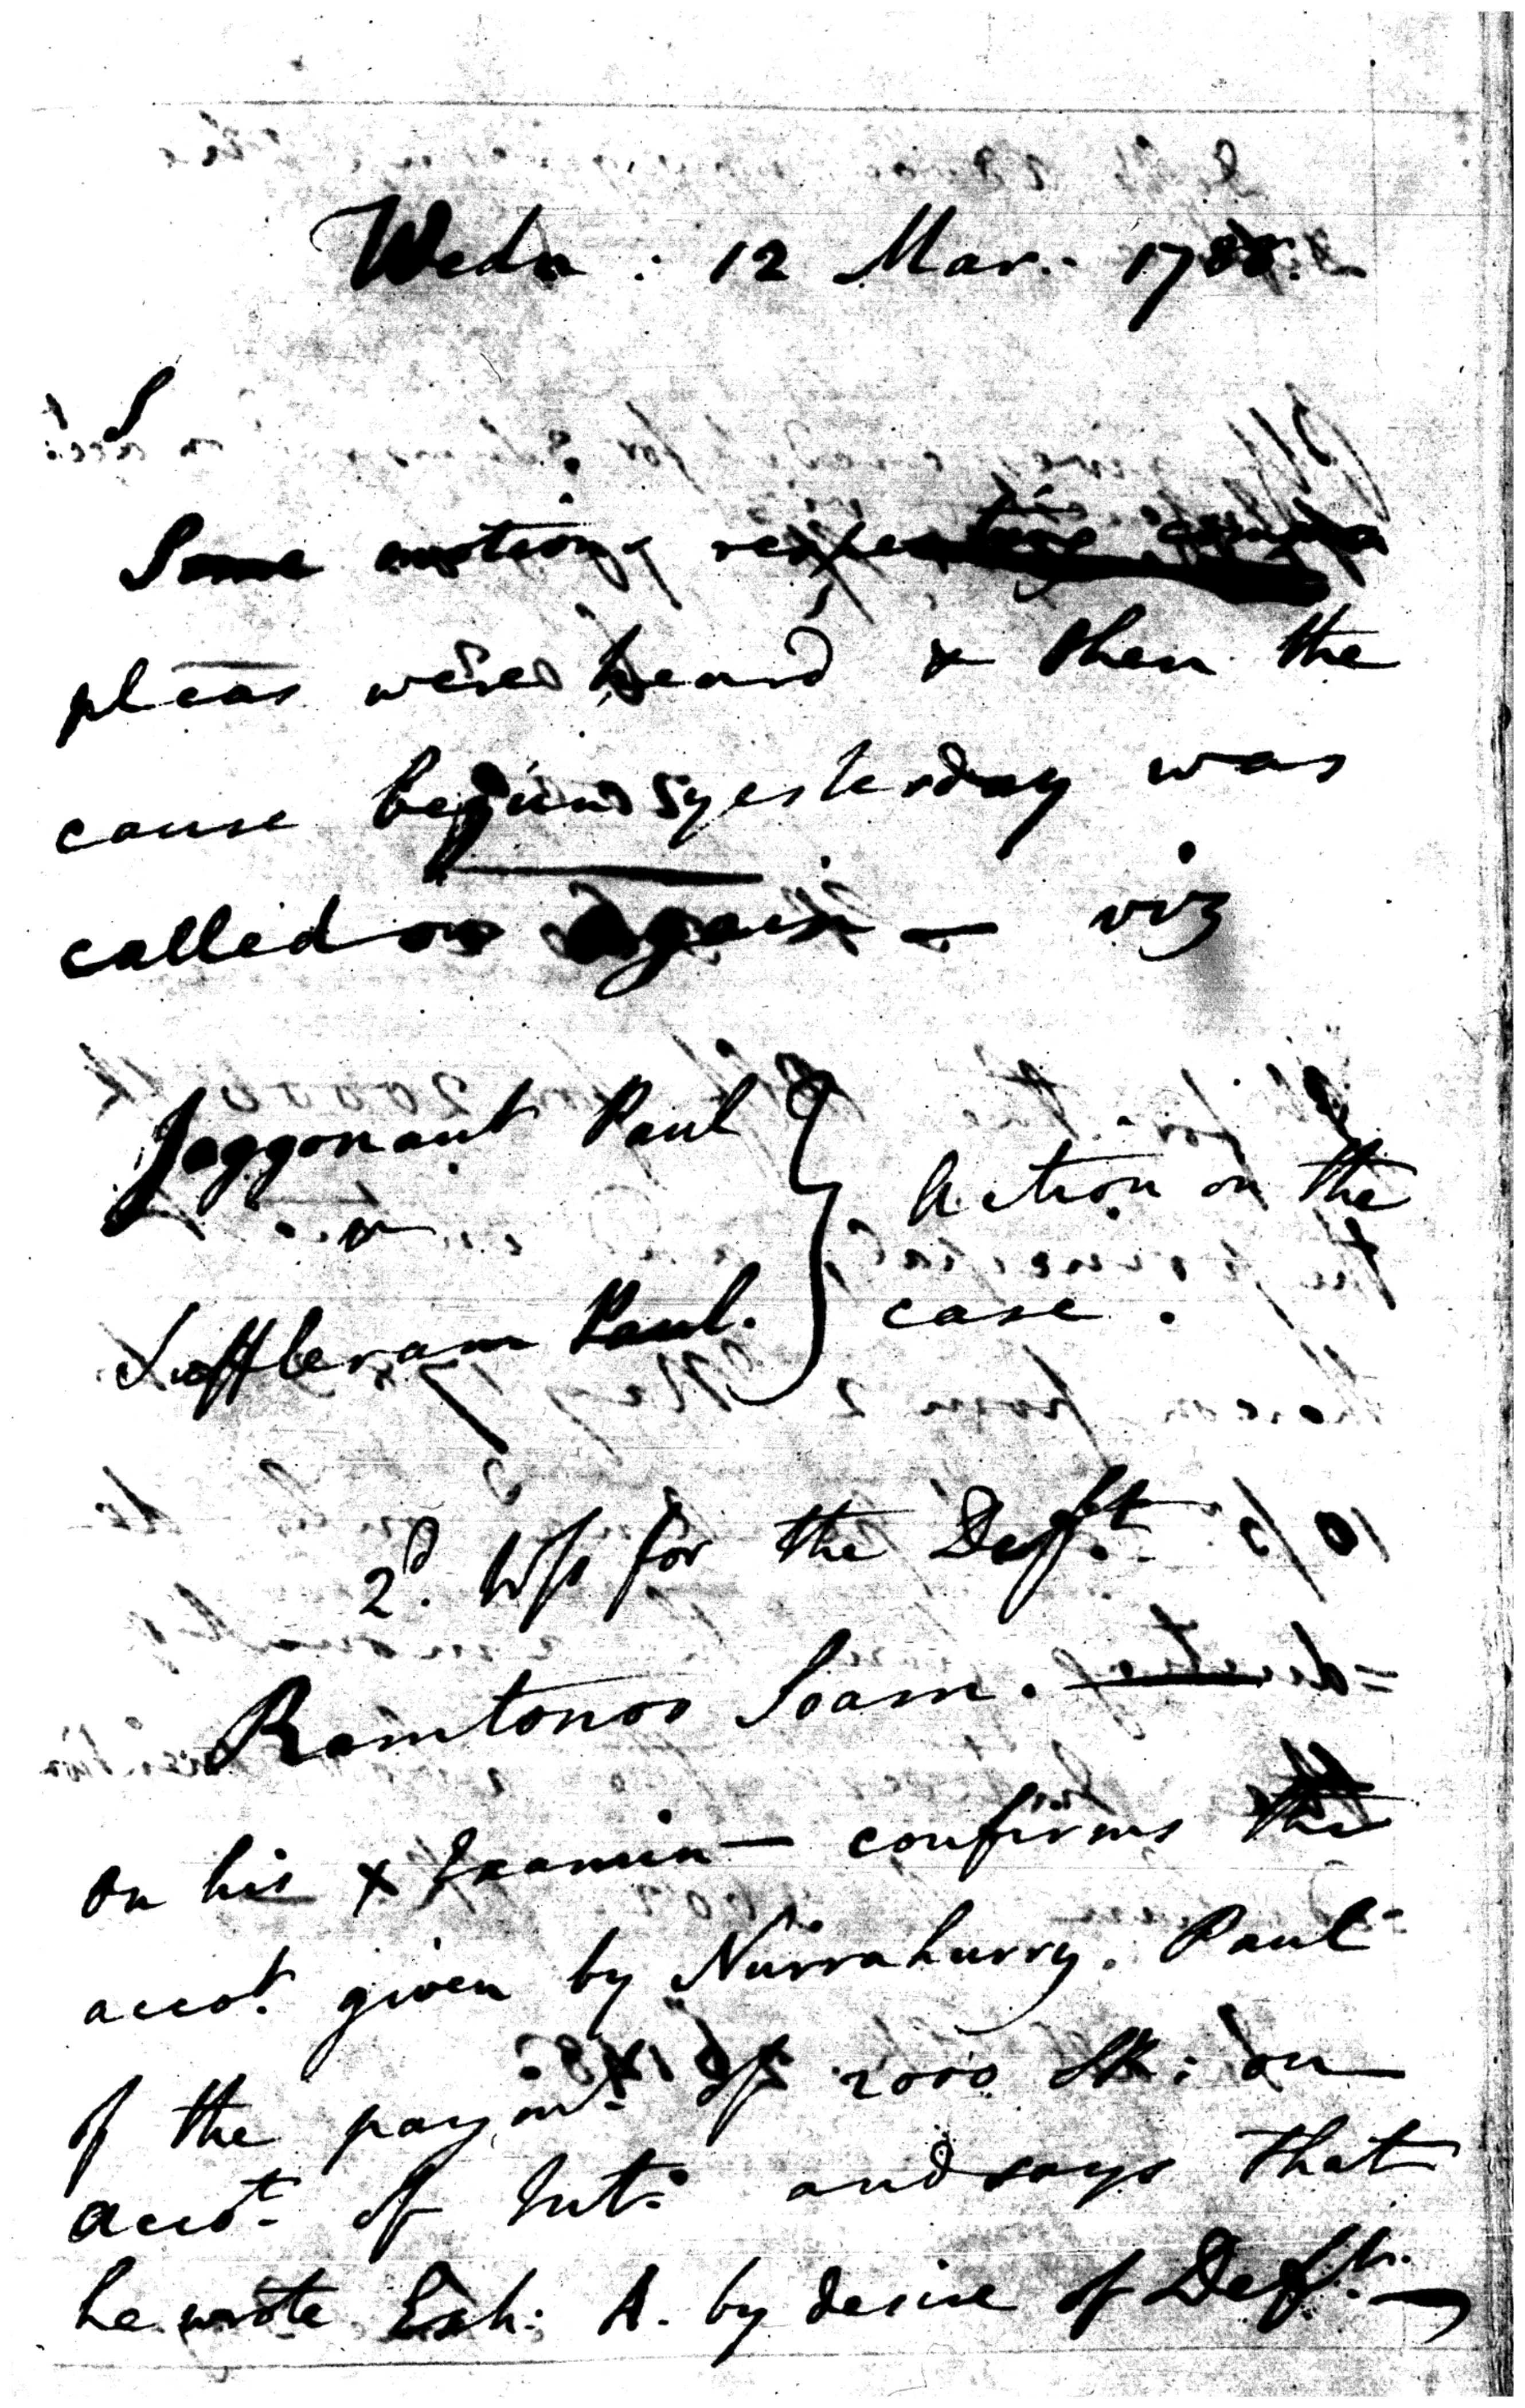 Wedn : 12 Mar. 1788.
S
Some motions respecting
pleas were heard & then the
cause begun yesterday was
called on again — viz
Jaggonaut Paul
v
Action on the
case.
Luffleram Paul.
2d. Wss for the Defft.
Ramtonoo Soam.
on his x Examin— confirms the
accot. given by Nurrahurry. Paul
of the paymt. of 2000 SR: on
accot. of Int: and says that
he wrote Exh: A. by desire of Deft.